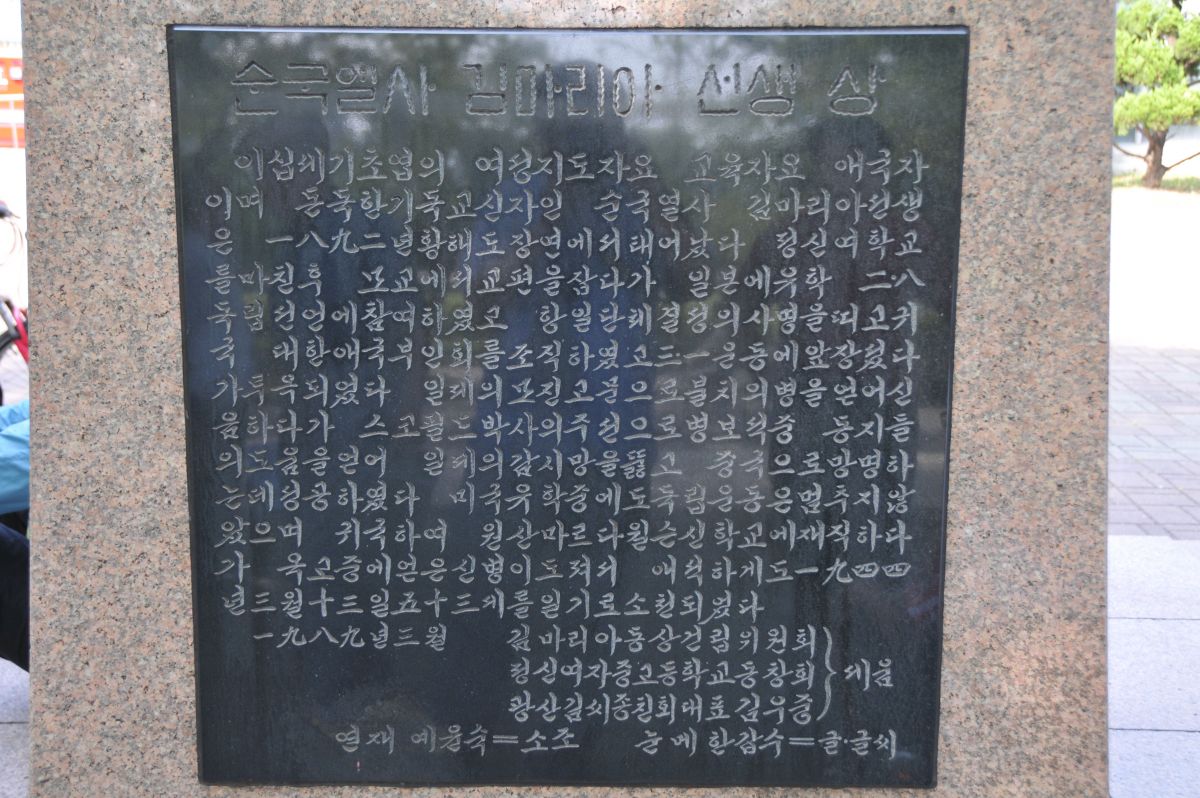 순국열사 김마리아 선생 상
이십세기초엽의 여성지도자요 교육자요 애국자
이며 돈독한기독교신자인 순국열사 김마리아선생
은 一八九二년황해도장연에서태어났다 정신여학교
를마친후 모교에서교편을잡다가 일본에유학 二·八
독립선언에참여하였고 항일단체결성의사명을띠고귀
국 대한애국부인회를조직하였고三·一운동에앞장섰다
가투옥되었다 일제의모진고문으로불치의병을얻어신
음하다가 스코필드박사의주선으로병보석중 동지들
의도움을얻어 일제의감시망을뚫고 중국으로망명하
는데성공하였다 미국유학중에도독립운동은멈추지않
았으며 귀국하여 원산마르다윌슨신학교에재직하다
가 옥고중에얻은신병이도져서 애석하게도一九四四
년三월十三일五十三세를일기로소천되셨다
一九八九년三월 김마리아동상건립위원회
정신여자중고등학교동창회
광산김씨종친회대표김우중
세움
연재 예운숙=소조 눈메 한감수=글·글씨